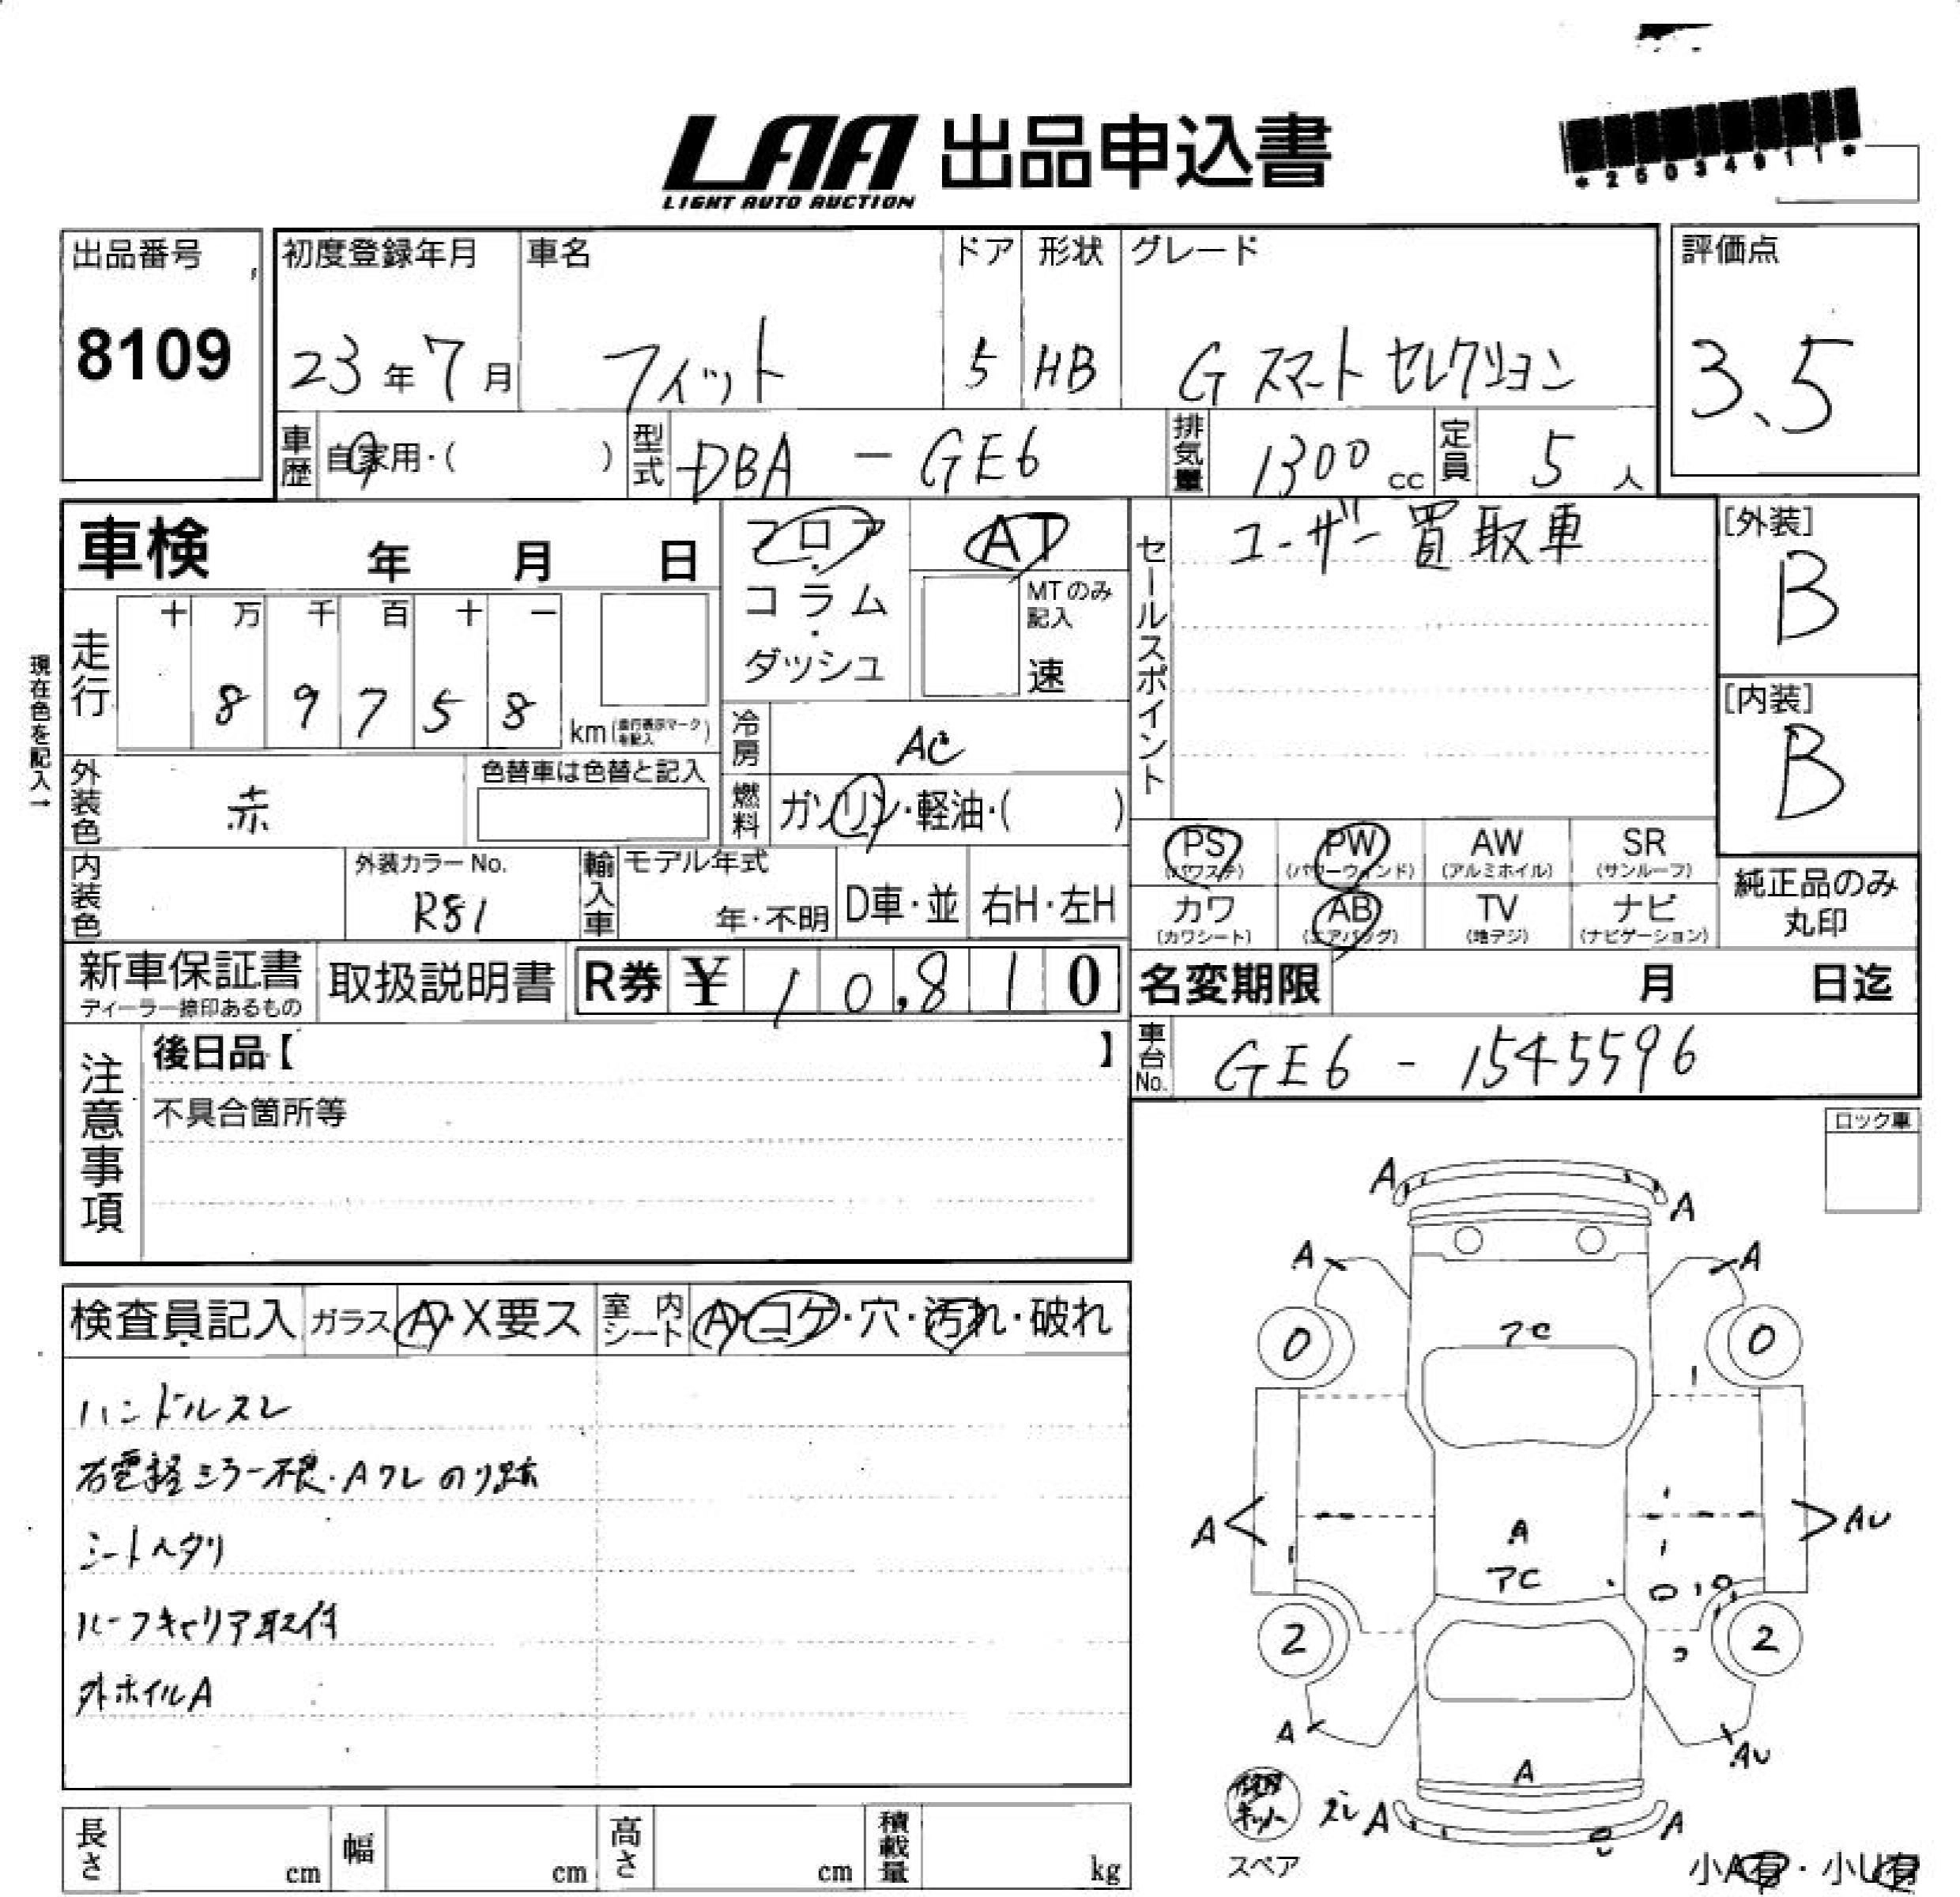 LAA 出品申込書
LIGHT AUTO AUCTION
*25034911*
出品番号
8109
初度登録年月
23年7月
車名
フィット
ドア
5
形状
HB
グレード
G スマートセレクション
評価点
3.5
車歴
自家用・( )
型式
DBA - GE6
排気量
1300 cc
定員
5人
車検 年 月 日
フロア・コラム・ダッシュ
AT
MTのみ記入
速
セールスポイント
ユーザー買取車
[外装]
B
[内装]
B
現在色を記入→
走行
十 万 千 百 十 一
8 9 7 5 8
km (走行表示マークを記入)
冷房
AC
外装色
赤
色替車は色替と記入
燃料
ガソリン・軽油・( )
PS (パワステ)
PW (パワーウィンド)
AW (アルミホイル)
SR (サンルーフ)
カワ (カワシート)
AB (エアバッグ)
TV (地デジ)
ナビ (ナビゲーション)
純正品のみ丸印
内装色
外装カラーNo.
R81
輸入車
モデル年式
年・不明
D車・並
右H・左H
新車保証書
ディーラー捺印あるもの
取扱説明書
R券 ¥ 10,810
名変期限 月 日迄
車台No.
GE6 - 1545596
注意事項
後日品【 】
不具合箇所等
ロック車
検査員記入
ガラス A・X要ス
室内シート A・コゲ・穴・汚れ・破れ
ハンドルスレ
右電格ミラー不良・Aワレ のり跡
シートヘタリ
ルーフキャリア取付
外ホイルA
A A
A A
アC
0 0
A AU
A
アC
2 2
A AU
A
スレ A A
修理キット
スペア
小A有・小U有
長さ cm
幅 cm
高さ cm
積載量 kg